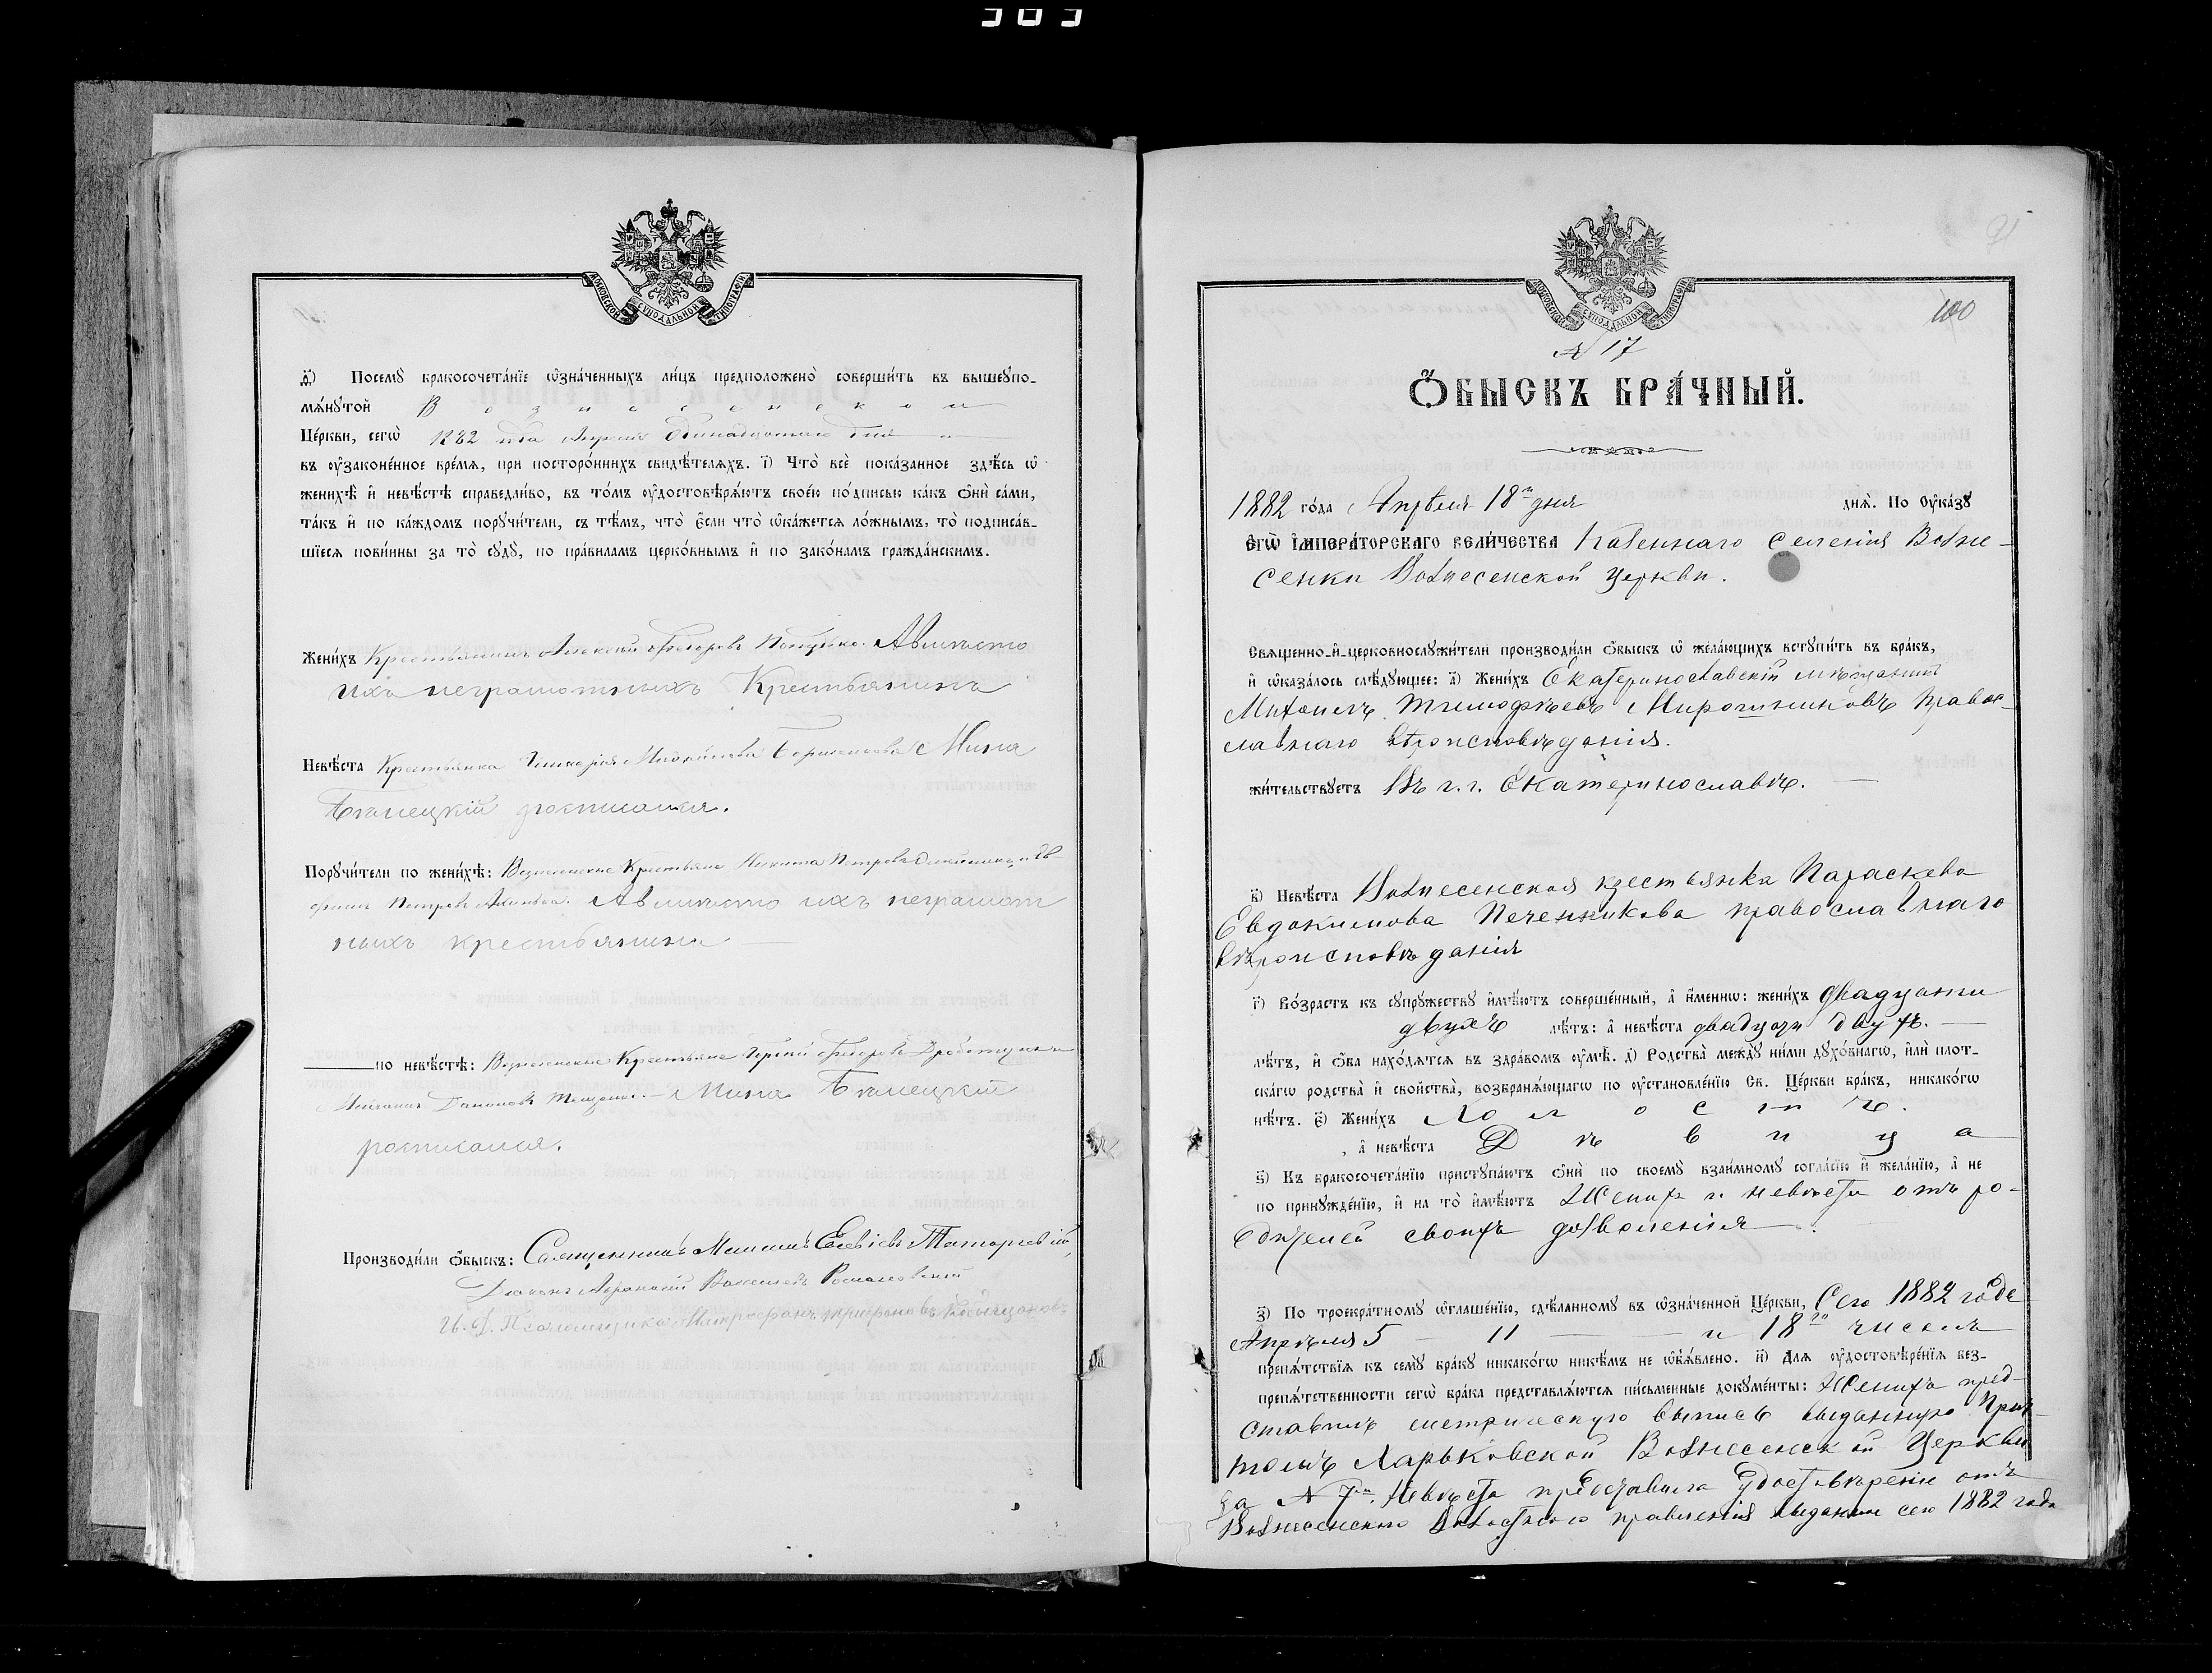 303
МОСКОВСКОЙ СѴНОДАЛЬНОЙ ТИПОГРАФІИ
ѳ҃) Посемꙋ бракосочета́нїе ѡ҆зна́ченныхъ ли́цъ предположено̀ соверши́ть въ вышеꙋпо-
мѧ́нꙋтой Вознесенской
Це́ркви, сегѡ̀ 1882 года Апреля Одинадцатаго дня
въ ᲂу҆законе́нное вре́мѧ, при посторо́ннихъ свидѣ́телѧхъ. і҃) Что̀ всѐ пока́занное здѣ́сь ѡ҆
женихѣ̀ и҆ невѣ́стѣ справедли́во, въ то́мъ ᲂу҆достовѣрѧ́ютъ свое́ю по́дписью ка́къ ѻ҆нѝ са́ми,
та́къ и҆ по ка́ждомъ порꙋчи́тели, съ тѣ́мъ, что̀ є҆́сли что̀ ѡ҆ка́жетсѧ ло́жнымъ, то̀ подписа́в-
шїесѧ пови́нны за то̀ сꙋдꙋ̀, по пра́виламъ церко́внымъ и҆ по зако́намъ гражда́нскимъ.
Жени́хъ Крестьянинъ Алексей Федоровъ Авмѣсто
ихъ неграмотныхъ Крестьянинъ
Невѣ́ста Крестьянка Мина
росписался.
Порꙋчи́тели по женихѣ̀: Вознесенские Крестьяне Никита Петровъ
Петровъ Авмѣсто ихъ неграмот
ныхъ крестьянинъ
по невѣ́стѣ: Вознесенские Крестьяне Федоровъ
Мина
росписался.
Производи́ли ѻ҆́быскъ: Священникъ Татаревскій
Диаконъ Афанасий
И. Д. Псаломщика Митрофанъ
91
МОСКОВСКОЙ СѴНОДАЛЬНОЙ ТИПОГРАФІИ
100
№ 17
Ѻ҆́БЫСКЪ БРА́ЧНЫЙ.
1882 го́да Апрѣля 18го дня днѧ̀. По ᲂу҆ка́зꙋ
Е҆ГѠ̀ И҆МПЕРА́ТОРСКАГО ВЕЛИ́ЧЕСТВА Казеннаго Селенія Возне-
сенки Вознесенской церкви.
Свѧще́нно-и҆-церковнослꙋжи́тели производи́ли ѻ҆́быскъ ѡ҆ жела́ющихъ встꙋпи́ть въ бра́къ,
и҆ ѡ҆каза́лось слѣ́дꙋющее: а҃) Жени́хъ Екатеринославскій мѣщанинъ
Михаилъ Тимофѣевъ Мирошниковъ Правос-
лавнаго вѣроисповѣданія.
жи́тельствꙋетъ Въ г. г. Екатеринославѣ.
в҃) Невѣ́ста Вознесенская крестьянка Параскева
Евдокимова Печенникова православнаго
вѣроисповѣданія
г҃) Во́зрастъ къ сꙋпрꙋ́жествꙋ и҆мѣ́ютъ соверше́нный, а҆ и҆́менно: жени́хъ двадцати
двухъ лѣ́тъ: а҆ невѣ́ста двадцати двухъ.
лѣ́тъ, и҆ ѻ҆́ба нахо́дѧтсѧ въ здра́вомъ ᲂу҆мѣ̀. д҃) Родства̀ междꙋ̀ ни́ми дꙋхо́внагѡ, и҆лѝ плот-
ска́гѡ родства̀ и҆ сво́йства, возбранѧ́ющагѡ по ᲂу҆становле́нїю Св. Це́ркви бра́къ, никако́гѡ
нѣ́тъ. є҃) Жени́хъ Холостъ.
, а҆ невѣ́ста Дѣвица
ѕ҃) Къ бракосочета́нїю пристꙋпа́ютъ ѻ҆нѝ по своемꙋ̀ взаи́мномꙋ согла́сїю и҆ жела́нїю, а҆ не
по принꙋжде́нїю, и҆ на то̀ и҆мѣ́ютъ Женихъ и невѣста отъ ро-
дителей своихъ дозволенія.
з҃) По троекра́тномꙋ ѡ҆глаше́нїю, сдѣ́ланномꙋ въ ѡ҆зна́ченной Це́ркви, Сего 1882 года
Апрѣля 5 — 11 — и 18го числъ
препѧ́тствїѧ къ семꙋ̀ бра́кꙋ никако́гѡ никѣ́мъ не ѡ҆б̾ѧ́влено. и҃) Длѧ ᲂу҆достовѣре́нїѧ без-
препѧ́тственности сегѡ̀ бра́ка представлѧ́ютсѧ пи́сьменные докꙋме́нты: Женихъ пред-
ставилъ метрическую выпись выданную Прич-
томъ Харьковской Вознесенской Церкви
за № 7м. Невѣста представила Удостовѣреніе отъ
Вознесенскаго Волостнаго правленія выданное сего 1882 года